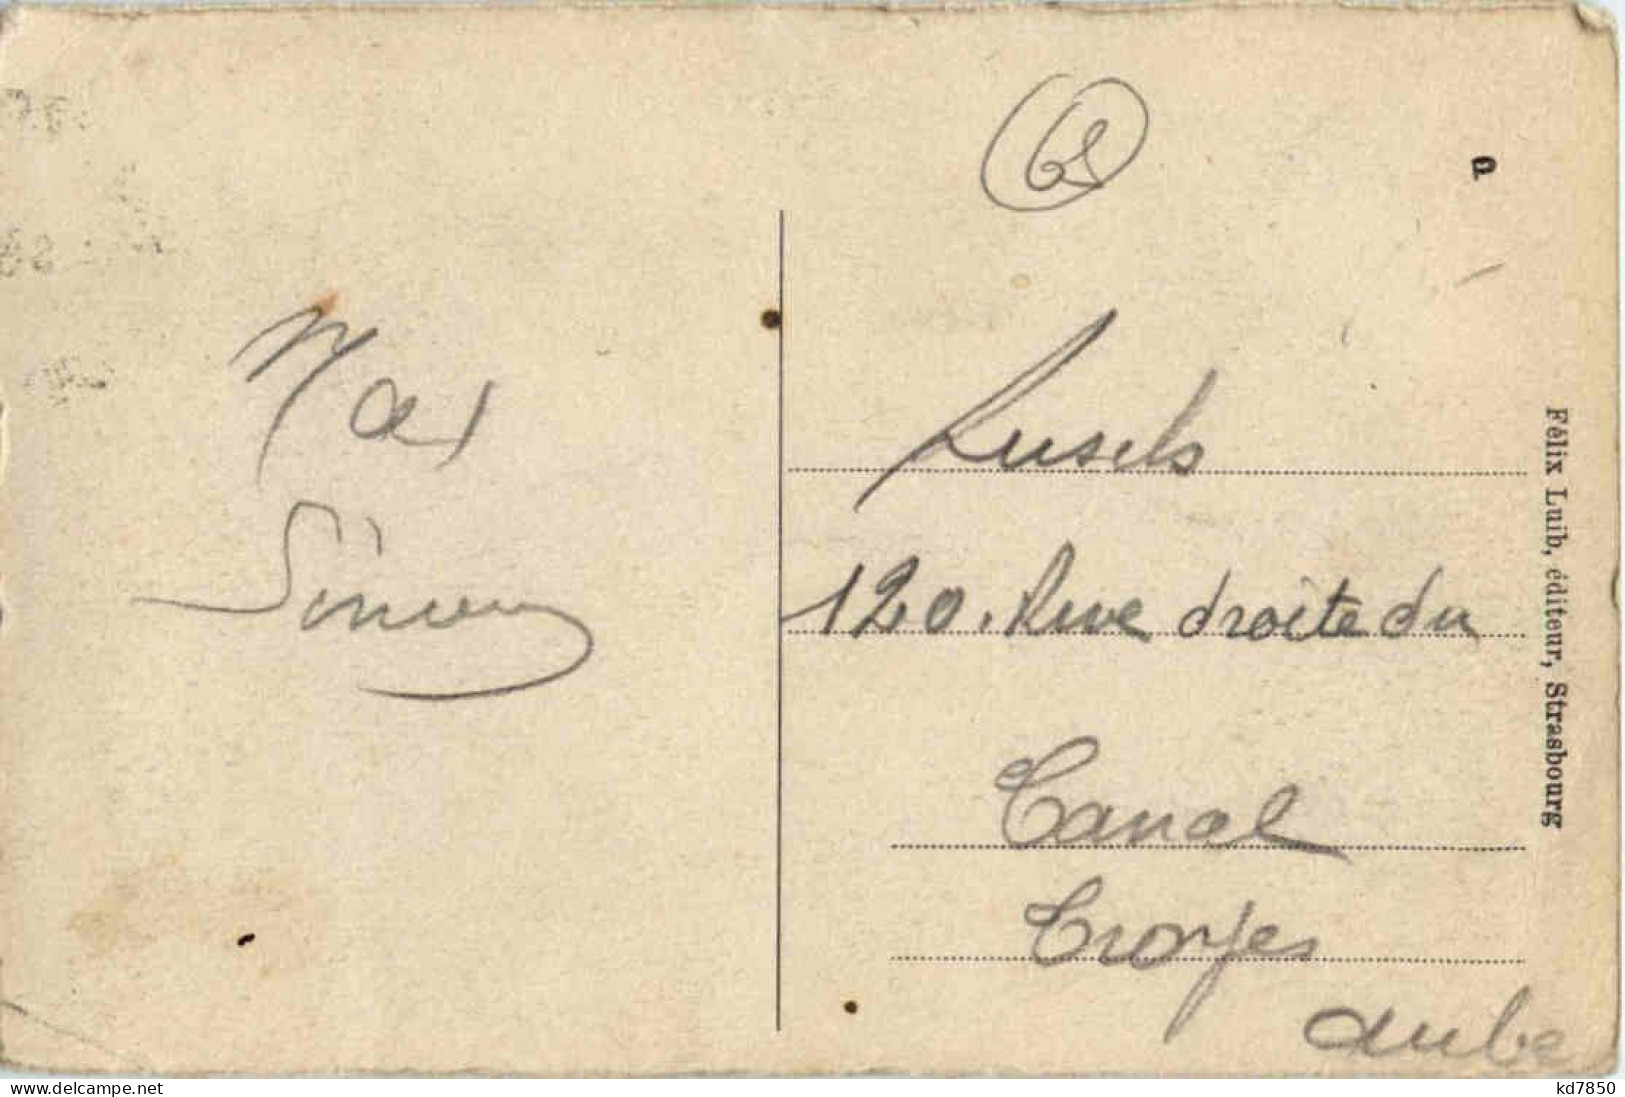 Max
Simon
68
Lusels
120. Rue droite du
Canal
Troyes
Aube
Félix Luib, éditeur, Strasbourg
hosted by delcampe.net
kd7850